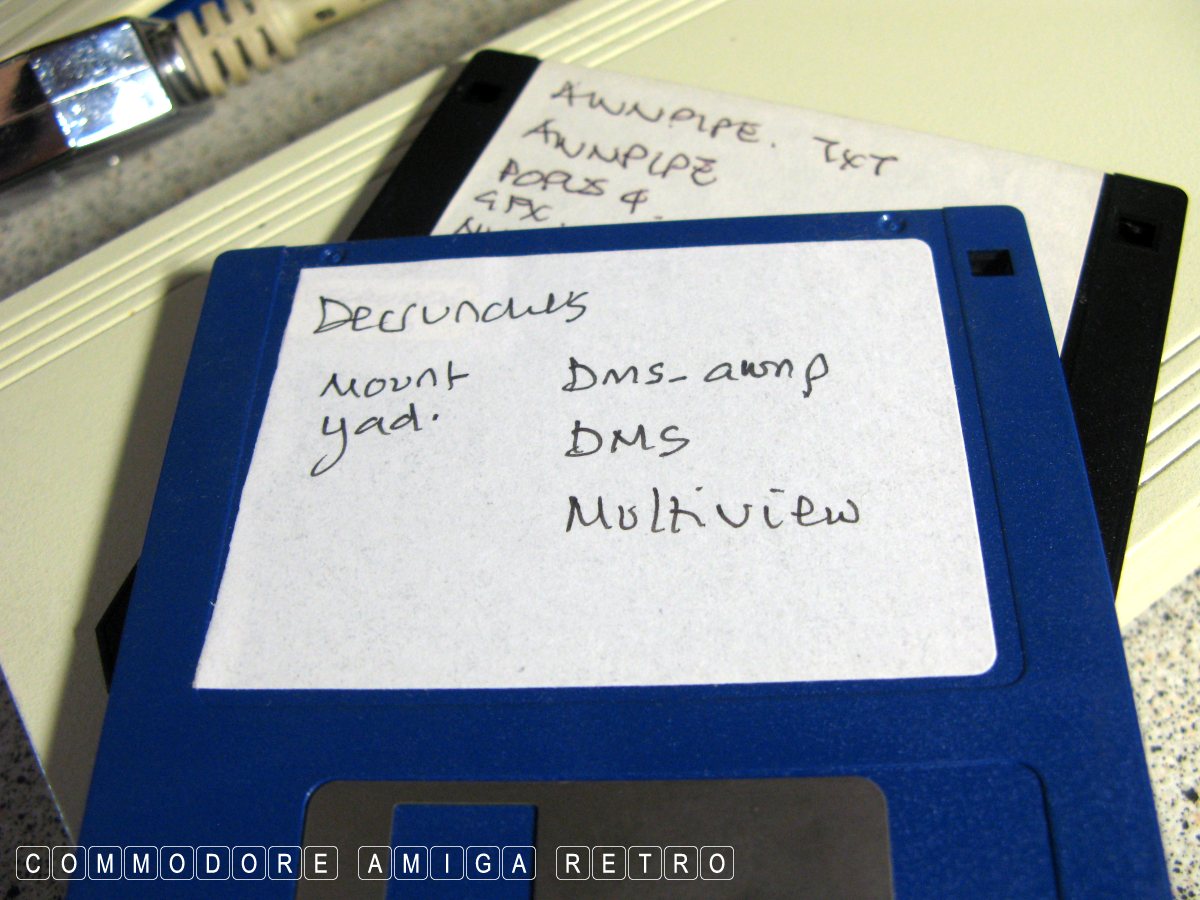 AWNPIPE. TXT
AWNPIPE
GFX.
Decrunchers
Mount
yad.
DMS-awnp
DMS
Multiview
COMMODORE AMIGA RETRO